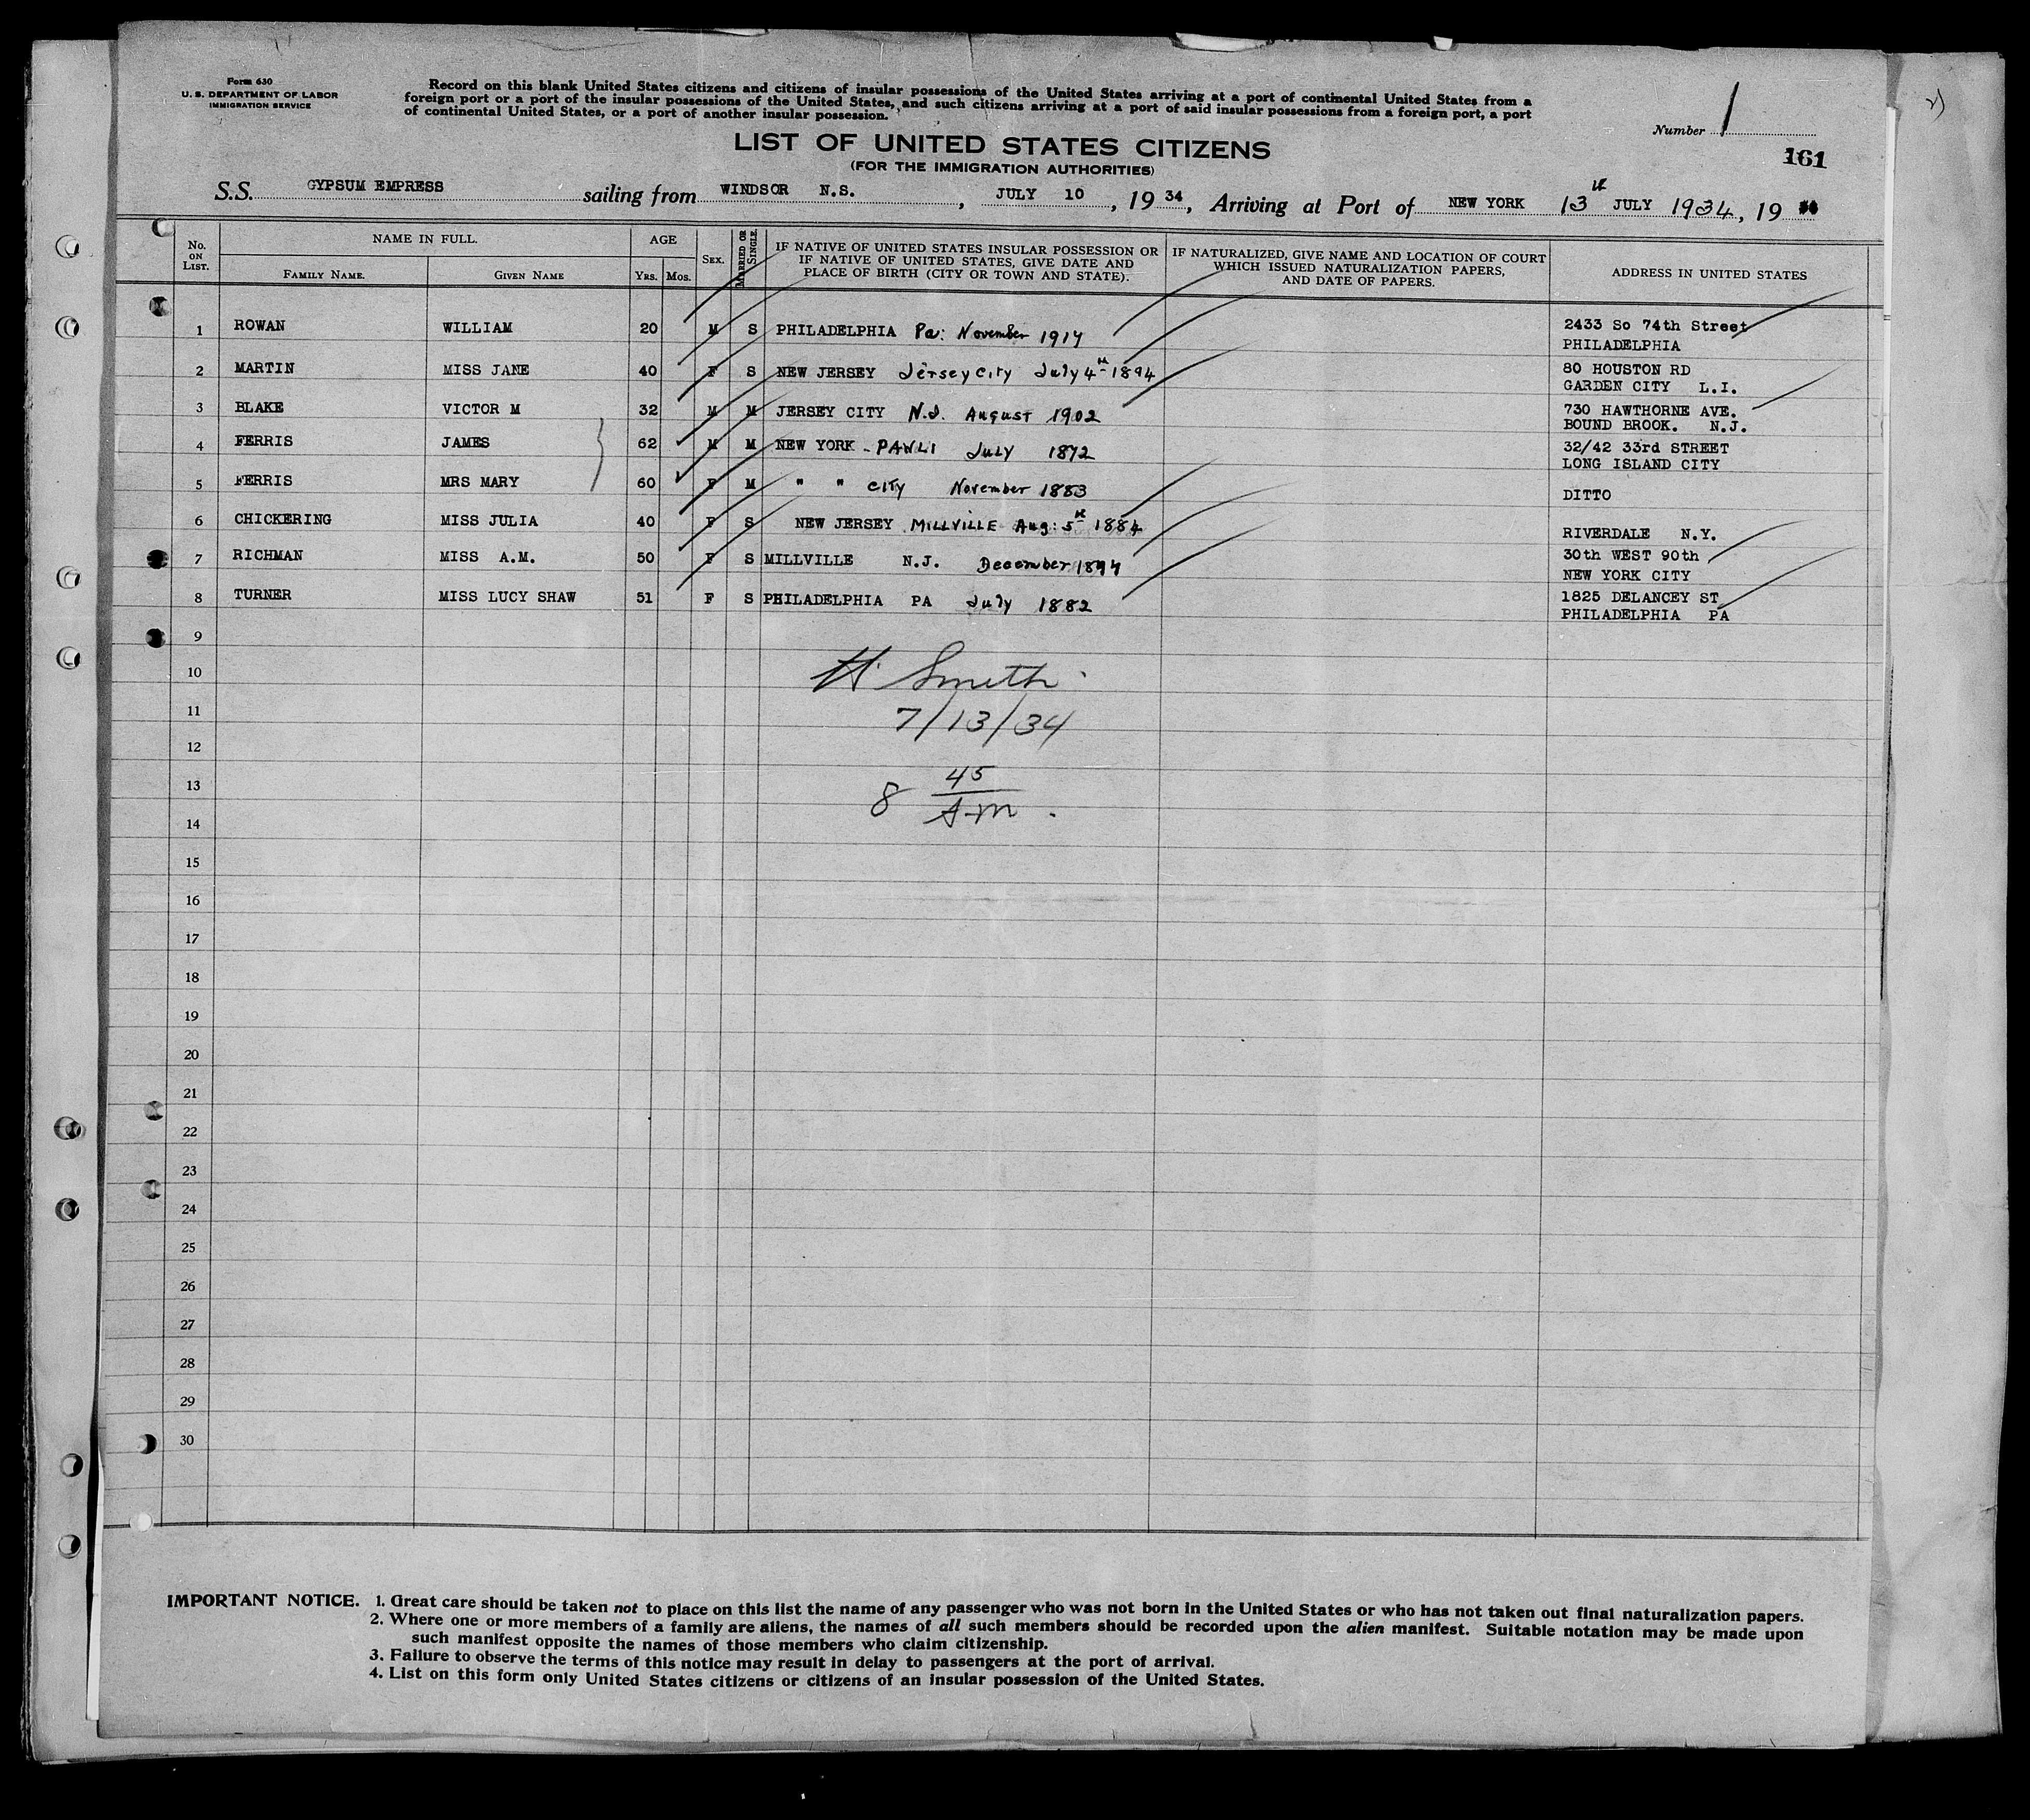 Form 630
U. S. DEPARTMENT OF LABOR
IMMIGRATION SERVICE
Record on this blank United States citizens and citizens of insular possessions of the United States arriving at a port of continental United States from a
foreign port or a port of the insular possessions of the United States, and such citizens arriving at a port of said insular possessions from a foreign port, a port
of continental United States, or a port of another insular possession.
Number 1
161
LIST OF UNITED STATES CITIZENS
(FOR THE IMMIGRATION AUTHORITIES)
S.S. GYPSUM EMPRESS sailing from WINDSOR N.S., JULY 10, 19 34, Arriving at Port of NEW YORK 13th JULY 1934, 19
No. ON LIST. NAME IN FULL. AGE SEX. MARRIED OR SINGLE. IF NATIVE OF UNITED STATES INSULAR POSSESSION OR IF NATIVE OF UNITED STATES, GIVE DATE AND PLACE OF BIRTH (CITY OR TOWN AND STATE). IF NATURALIZED, GIVE NAME AND LOCATION OF COURT WHICH ISSUED NATURALIZATION PAPERS, AND DATE OF PAPERS. ADDRESS IN UNITED STATES
FAMILY NAME. GIVEN NAME YRS. MOS.
1 ROWAN WILLIAM 20 M S PHILADELPHIA Pa: November 1914 2433 So 74th Street
PHILADELPHIA
2 MARTIN MISS JANE 40 F S NEW JERSEY Jersey City July 4th 1894 80 HOUSTON RD
GARDEN CITY L.I.
3 BLAKE VICTOR M 32 M M JERSEY CITY N.J. August 1902 730 HAWTHORNE AVE.
BOUND BROOK. N.J.
4 FERRIS JAMES 62 M M NEW YORK - PAWLI July 1872 32/42 33rd STREET
LONG ISLAND CITY
5 FERRIS MRS MARY 60 F M " " CITY November 1883 DITTO
6 CHICKERING MISS JULIA 40 F S NEW JERSEY MILLVILLE Aug: 5th 1884 RIVERDALE N.Y.
7 RICHMAN MISS A.M. 50 F S MILLVILLE N.J. December 1894 30th WEST 90th
NEW YORK CITY
8 TURNER MISS LUCY SHAW 51 F S PHILADELPHIA PA July 1882 1825 DELANCEY ST
PHILADELPHIA PA
9
10 H Smith
11 7/13/34
12
13 8 45
14 A-M.
15
16
17
18
19
20
21
22
23
24
25
26
27
28
29
30
IMPORTANT NOTICE. 1. Great care should be taken not to place on this list the name of any passenger who was not born in the United States or who has not taken out final naturalization papers.
2. Where one or more members of a family are aliens, the names of all such members should be recorded upon the alien manifest. Suitable notation may be made upon
such manifest opposite the names of those members who claim citizenship.
3. Failure to observe the terms of this notice may result in delay to passengers at the port of arrival.
4. List on this form only United States citizens or citizens of an insular possession of the United States.